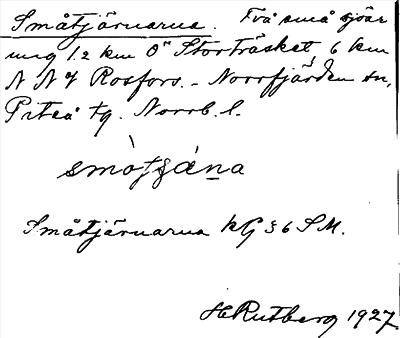 Småtjärnarna. Två små sjöar
1.2 km O Storträsket 6 km
N N V Rosfors. - Norrfjärden sn,
Piteå tg. Norrb. l.
Småtjärnarna kG 36 SM.
H Rutberg 1927